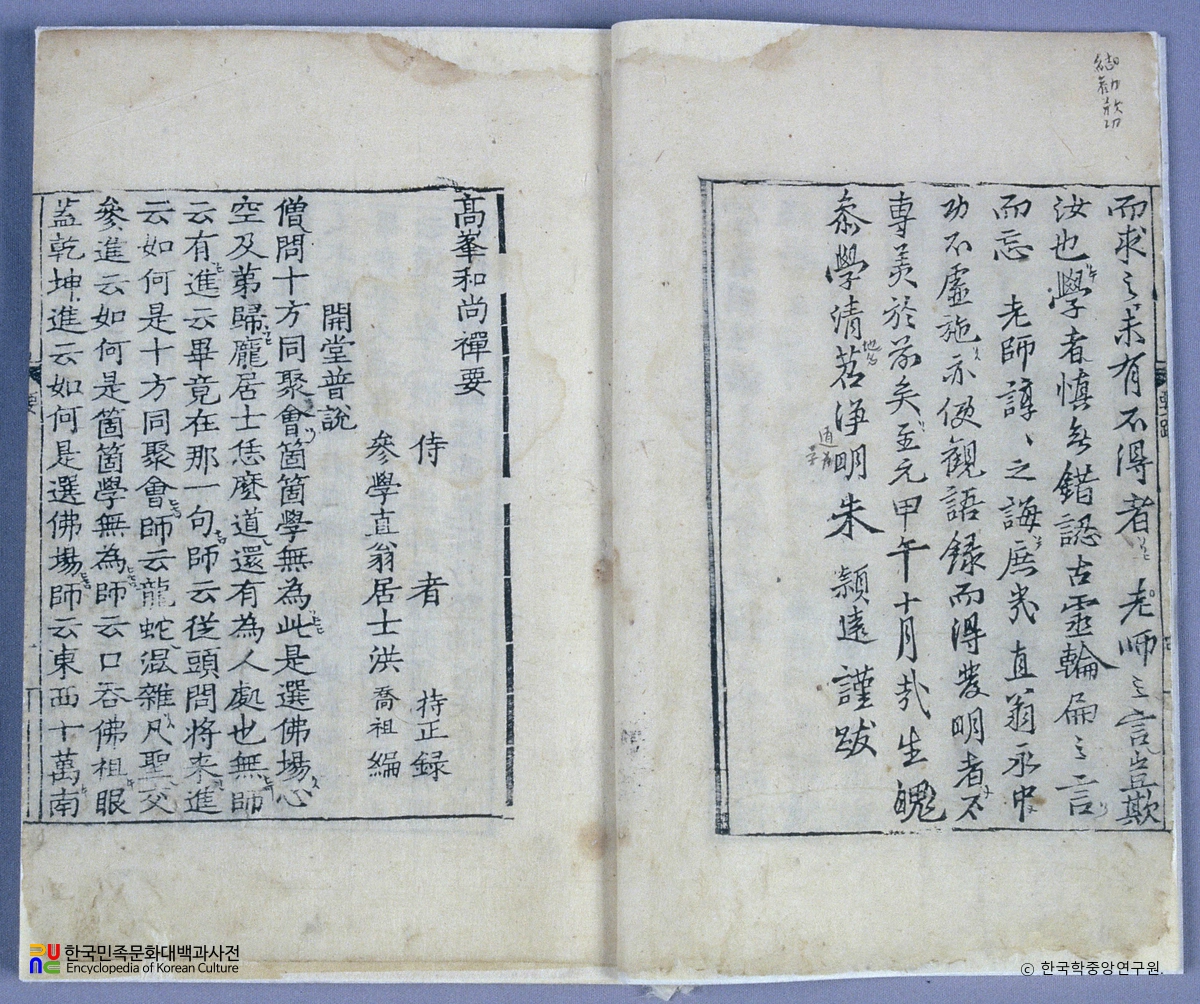 而求之未有不得者老師之言豈欺
汝也學者愼無錯認古靈輪扁之言
而忘 老師諄、之誨庶幾直翁承中
功不虛施亦使觀語錄而得發明者不
專美於前矣至元甲午十月哉生魄
叅學清茗淨明朱 穎遠 謹跋
高峯和尚禪要
侍 者 持正録
參學直翁居士洪喬祖編
開堂普說
僧問十方同聚會箇箇學無為此是選佛場心
空及第歸龐居士恁麼道還有為人處也無師
云有進云畢竟在那一句師云從頭問將来進
云如何是十方同聚會師云龍蛇混雜凡聖交
參進云如何是箇箇學無為師云口吞佛祖眼
蓋乾坤進云如何是選佛場師云東西十萬南
한국민족문화대백과사전
Encyclopedia of Korean Culture
© 한국학중앙연구원.